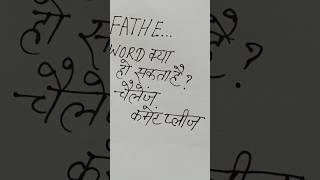 FATHE...
WORD क्या
हो सकता है?
चैलेंज
कमेंट प्लीज